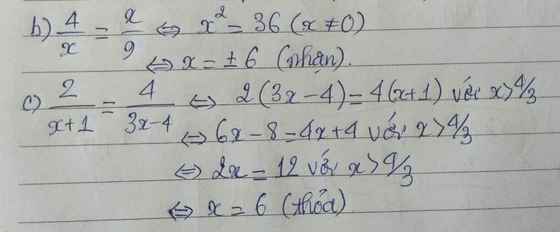 b) 4/x = x/9 ⇔ x² = 36 (x ≠ 0)
⇔ x = ± 6 (nhận).
c) 2/(x+1) = 4/(3x-4) ⇔ 2(3x-4) = 4(x+1) với x > 4/3
⇔ 6x - 8 = 4x + 4 với x > 4/3
⇔ 2x = 12 với x > 4/3
⇔ x = 6 (thỏa)